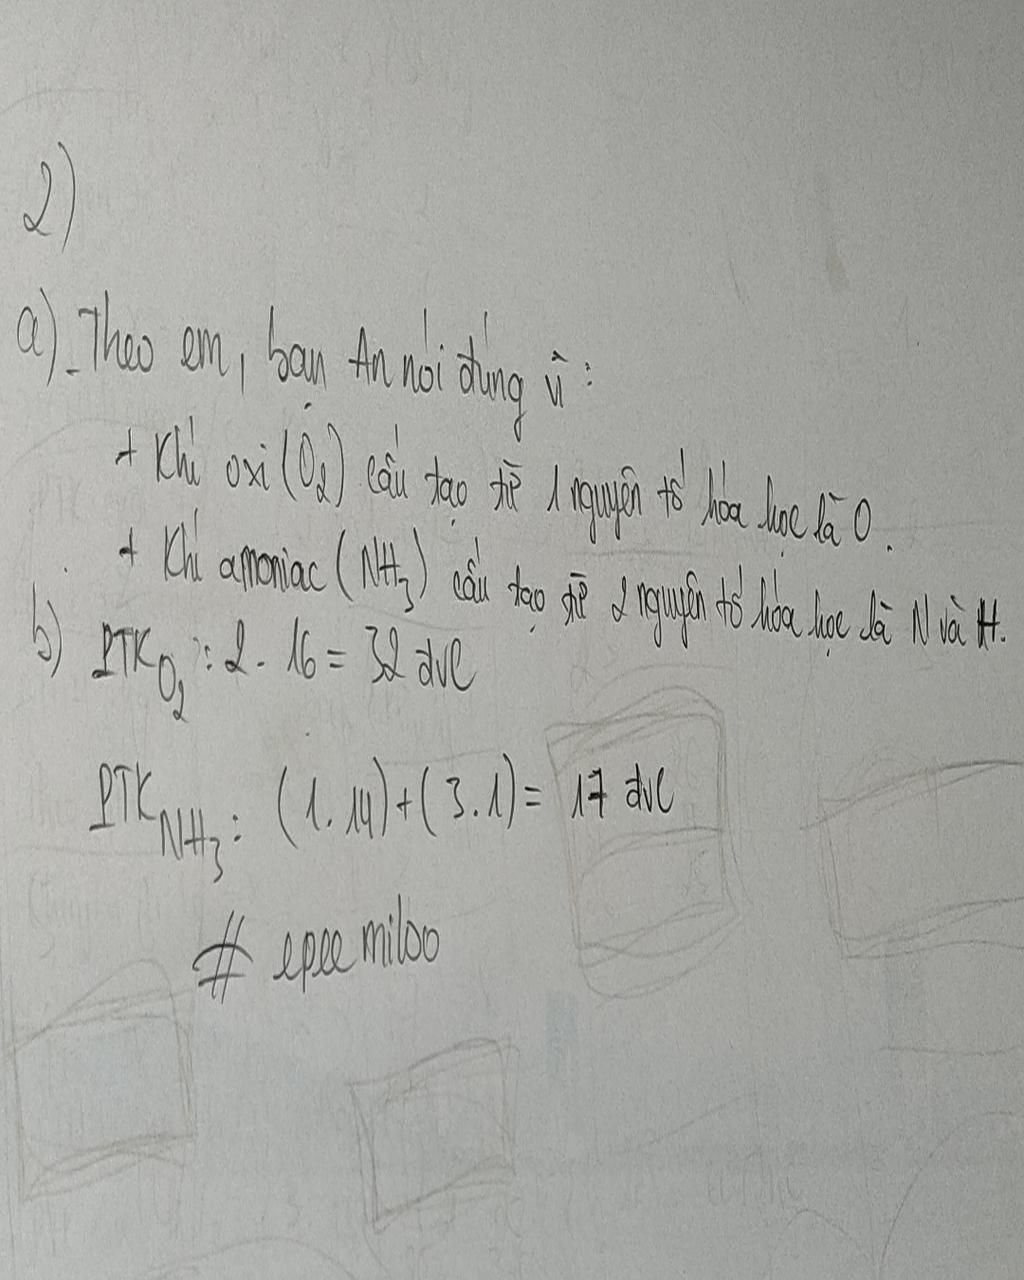 2)
a) - Theo em, bạn An nói đúng vì:
+ Khí oxi (O₂) cấu tạo từ 1 nguyên tố hóa học là O.
+ Khí amoniac (NH₃) cấu tạo từ 2 nguyên tố hóa học là N và H.
b) PTK O₂ : 2 . 16 = 32 đvC
PTK NH₃ : (1.14)+(3.1)= 17 đvC
# epee miloo